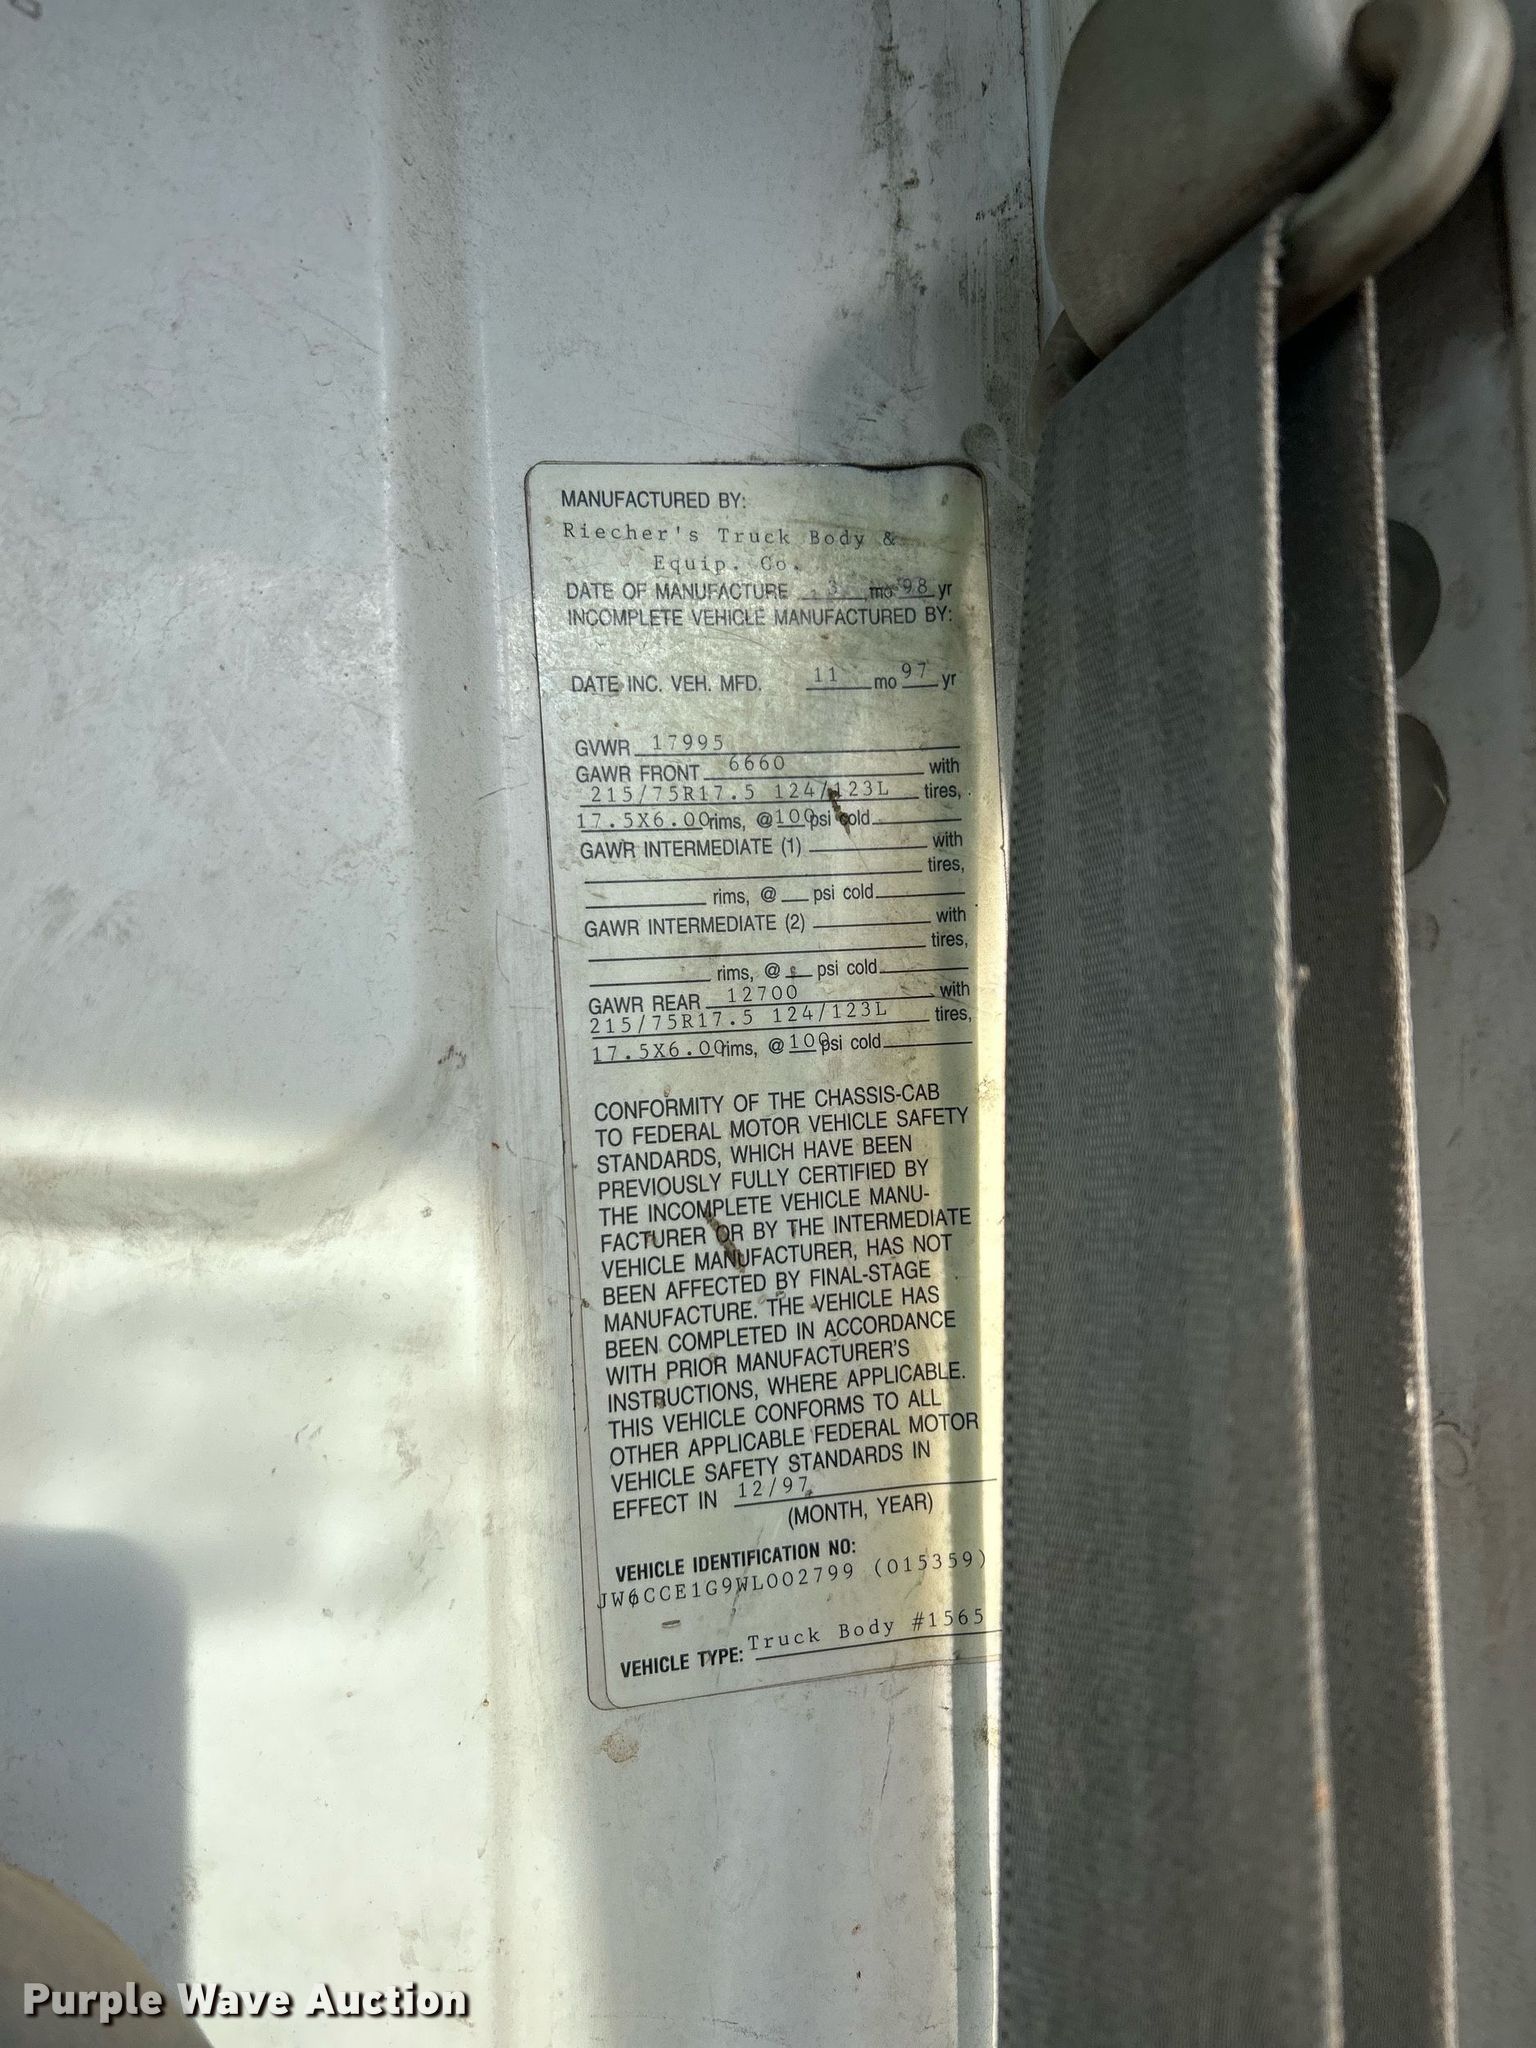 MANUFACTURED BY:
Riecher's Truck Body &
Equip. Co.
DATE OF MANUFACTURE 3 mo 98 yr
INCOMPLETE VEHICLE MANUFACTURED BY:
DATE INC. VEH. MFD. 11 mo 97 yr
GVWR 17995
GAWR FRONT 6660 with
215/75R17.5 124/123L tires,
17.5X6.00 rims, @ 100 psi cold
GAWR INTERMEDIATE (1) with
tires,
rims, @ psi cold
GAWR INTERMEDIATE (2) with
tires,
rims, @ psi cold
GAWR REAR 12700 with
215/75R17.5 124/123L tires,
17.5X6.00 rims, @ 100 psi cold
CONFORMITY OF THE CHASSIS-CAB
TO FEDERAL MOTOR VEHICLE SAFETY
STANDARDS, WHICH HAVE BEEN
PREVIOUSLY FULLY CERTIFIED BY
THE INCOMPLETE VEHICLE MANU-
FACTURER OR BY THE INTERMEDIATE
VEHICLE MANUFACTURER, HAS NOT
BEEN AFFECTED BY FINAL-STAGE
MANUFACTURE. THE VEHICLE HAS
BEEN COMPLETED IN ACCORDANCE
WITH PRIOR MANUFACTURER'S
INSTRUCTIONS, WHERE APPLICABLE.
THIS VEHICLE CONFORMS TO ALL
OTHER APPLICABLE FEDERAL MOTOR
VEHICLE SAFETY STANDARDS IN
EFFECT IN 12/97
(MONTH, YEAR)
VEHICLE IDENTIFICATION NO:
JW6CCE1G9WL002799 (015359)
VEHICLE TYPE: Truck Body #1565
Purple Wave Auction